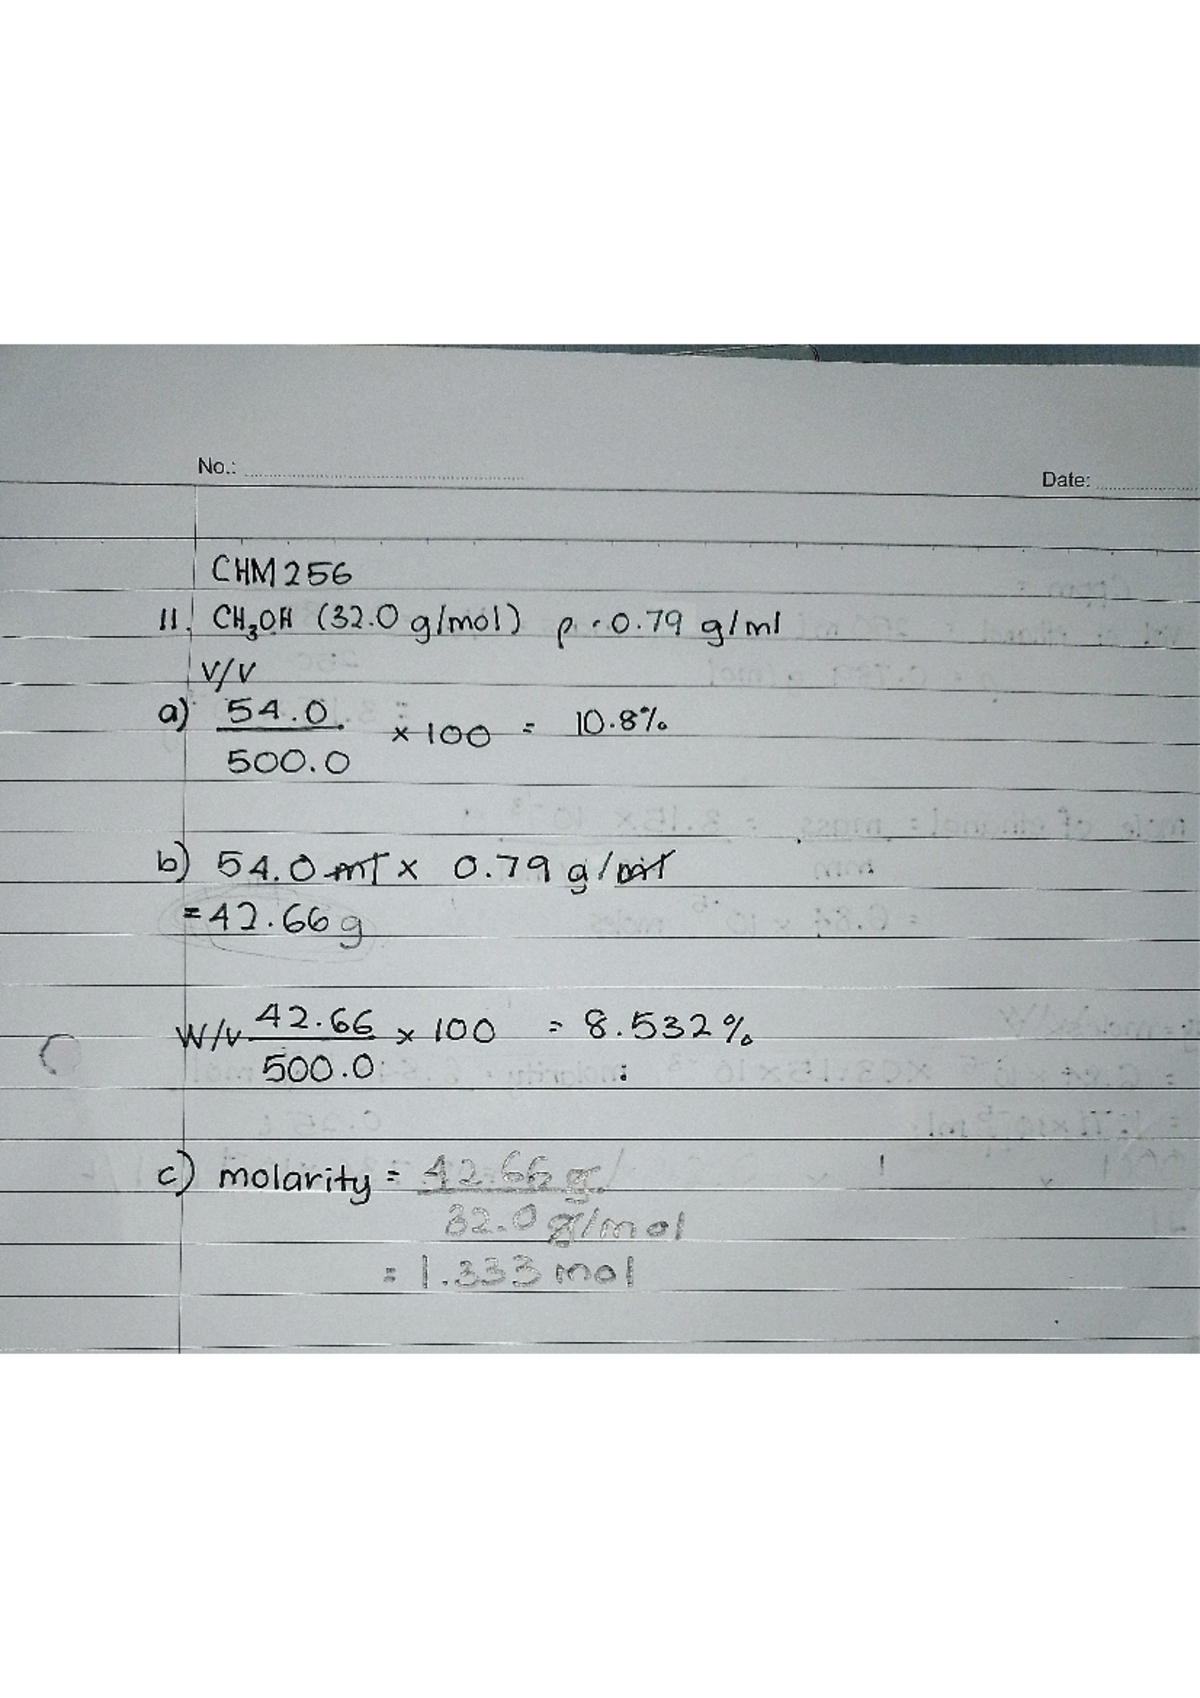 No.:
Date:
CHM256
11. CH₃OH (32.0 g/mol) ρ = 0.79 g/ml
V/V
a) 54.0
x 100 = 10.8%
500.0
b) 54.0 ml x 0.79 g/ml
= 42.66 g
W/V 42.66 x 100 = 8.532%
500.0
c) molarity = 42.66 g
32.0 g/mol
= 1.333 mol